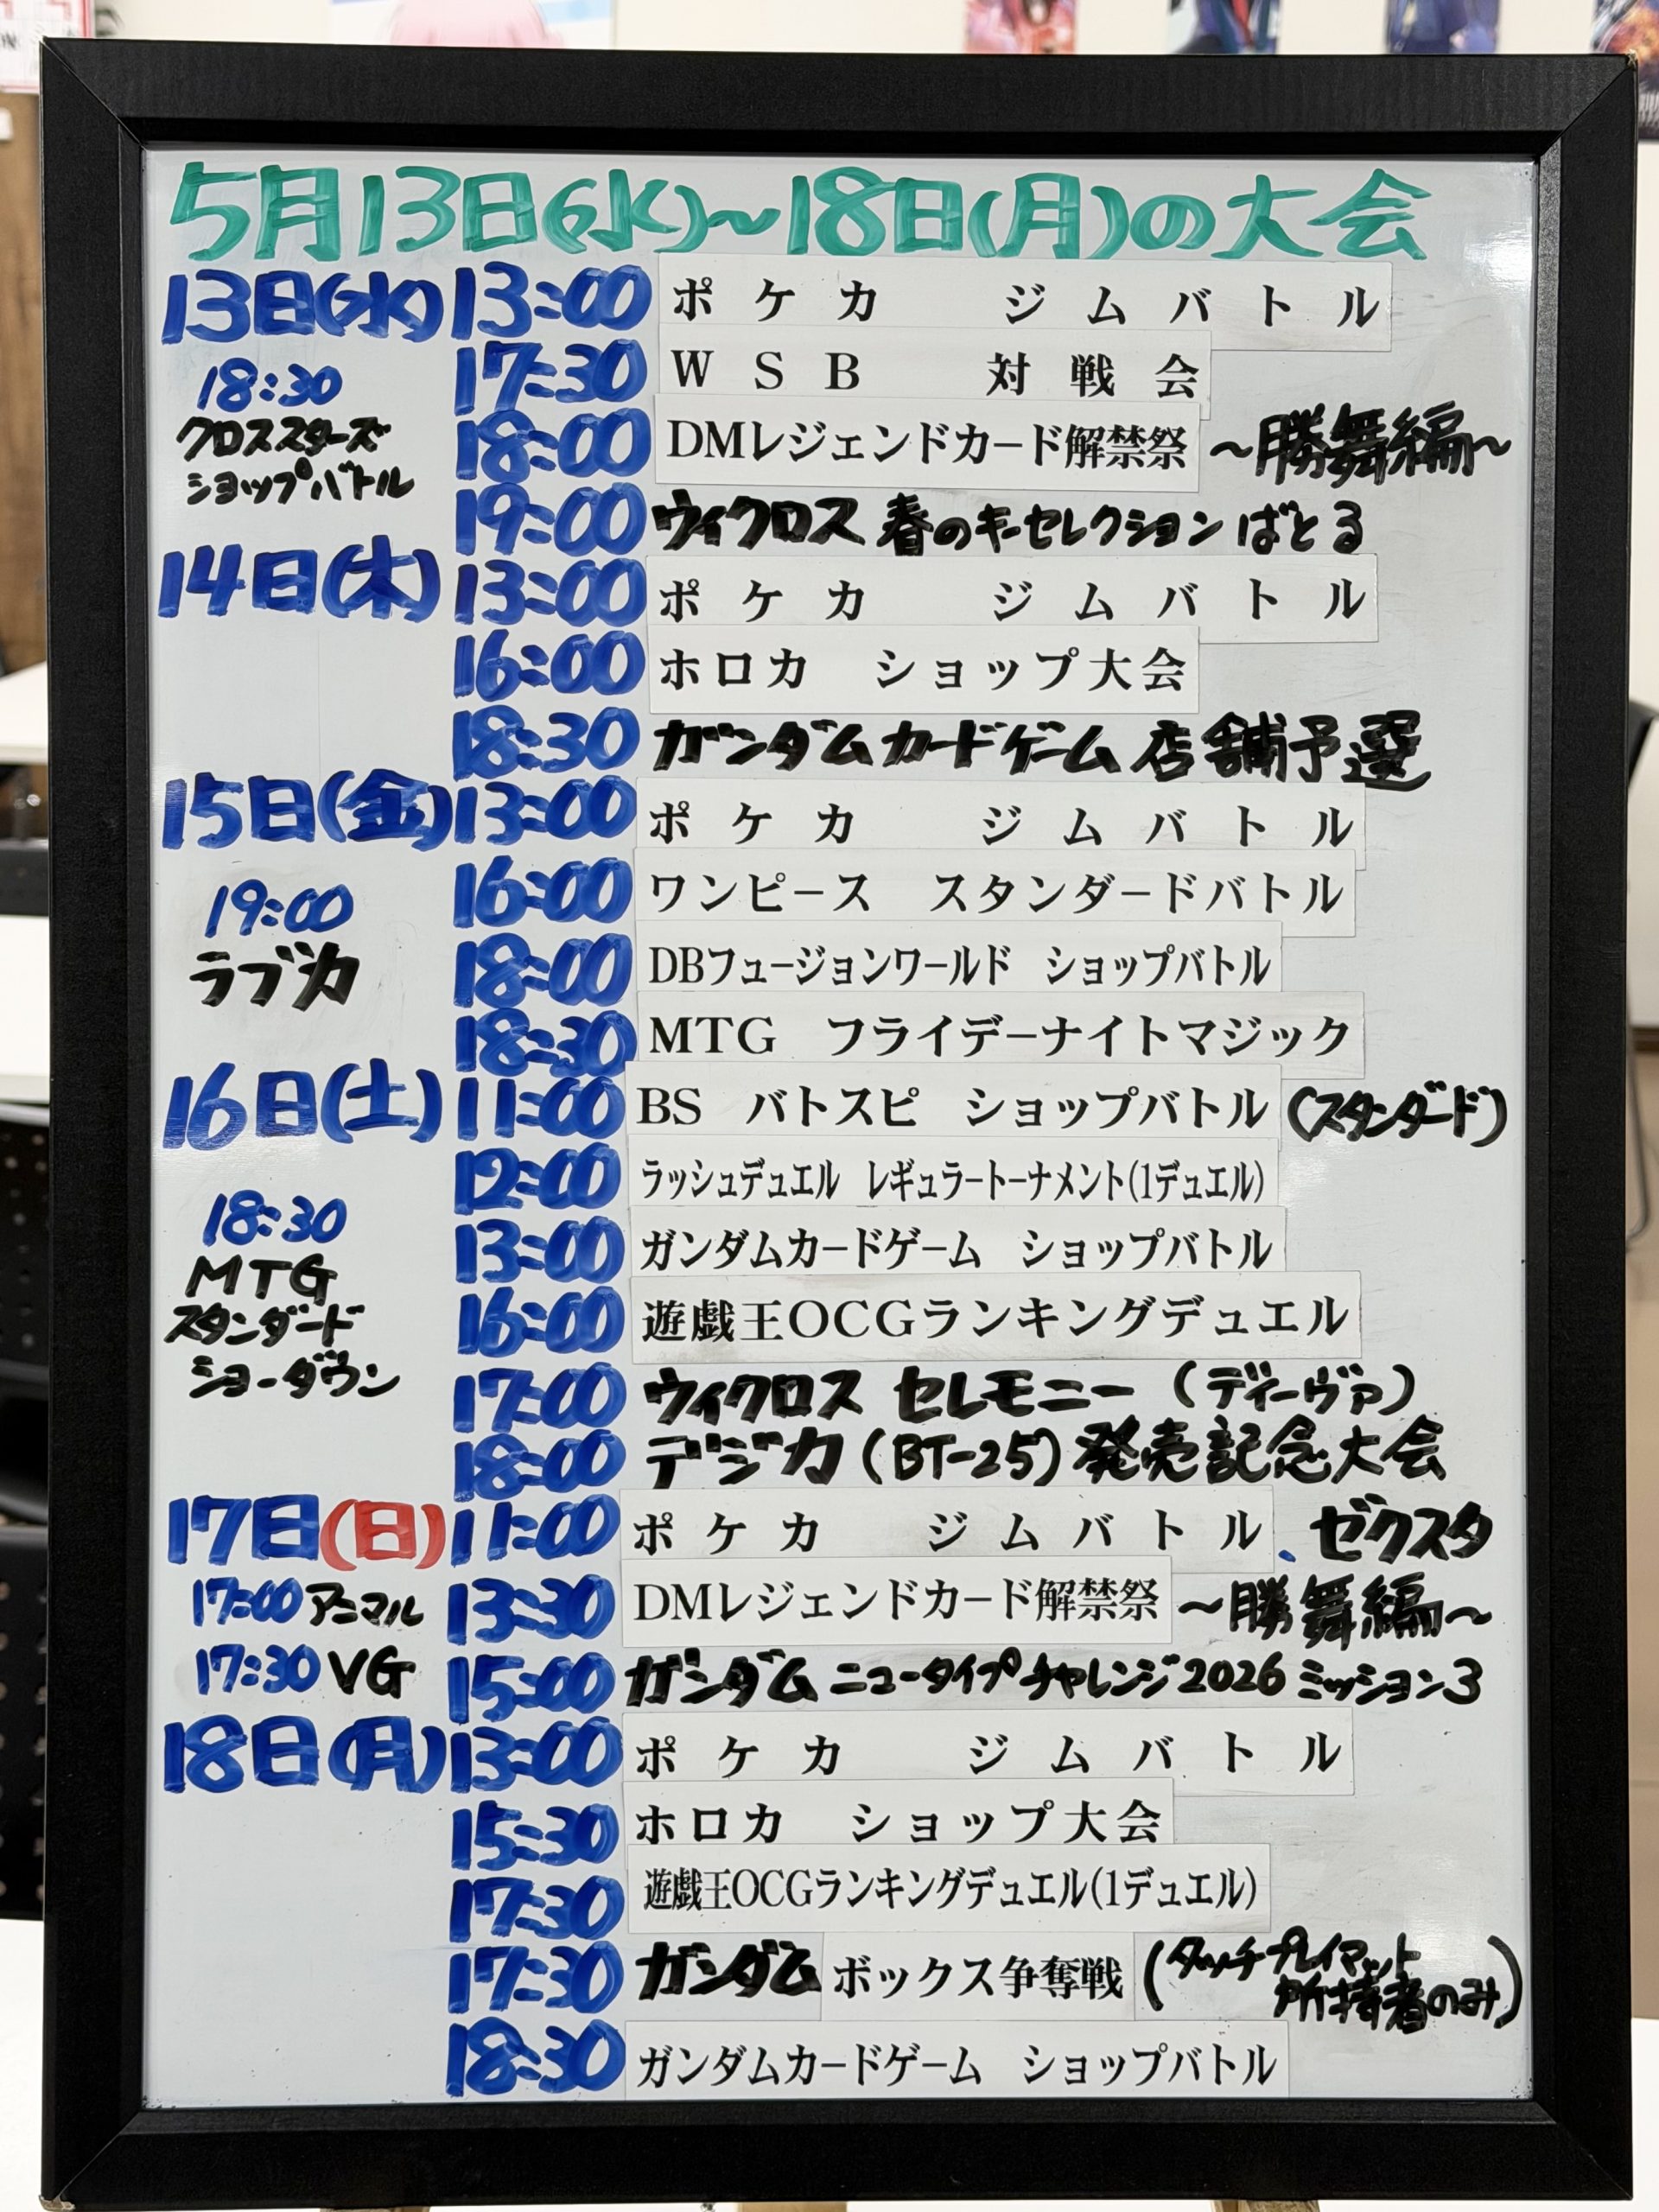 5月13日(水)～18日(月)の大会
13日(水) 13:00 ポケカ ジムバトル
17:30 WSB 対戦会
18:30
クロススターズ
ショップバトル
18:00 DMレジェンドカード解禁祭 ～勝舞編～
19:00 ウィクロス 春のキーセレクションばとる
14日(木) 13:00 ポケカ ジムバトル
16:00 ホロカ ショップ大会
18:30 ガンダムカードゲーム 店舗予選
15日(金) 13:00 ポケカ ジムバトル
16:00 ワンピース スタンダードバトル
19:00
ラブカ
18:00 DBフュージョンワールド ショップバトル
18:30 MTG フライデーナイトマジック
16日(土) 11:00 BS バトスピ ショップバトル (スタンダード)
12:00 ラッシュデュエル レギュラートーナメント(1デュエル)
18:30
MTG
スタンダード
ショーダウン
13:00 ガンダムカードゲーム ショップバトル
16:00 遊戯王OCGランキングデュエル
17:00 ウィクロス セレモニー (ディーヴァ)
18:00 デジカ (BT-25) 発売記念大会
17日(日) 11:00 ポケカ ジムバトル、ゼクスタ
17:00 アニマル
17:30 VG
13:30 DMレジェンドカード解禁祭 ～勝舞編～
15:00 ガンダム ニュータイプチャレンジ2026 ミッション3
18日(月) 13:00 ポケカ ジムバトル
15:30 ホロカ ショップ大会
17:30 遊戯王OCGランキングデュエル(1デュエル)
17:30 ガンダム ボックス争奪戦 (タッチプレイマット
所持者のみ)
18:30 ガンダムカードゲーム ショップバトル